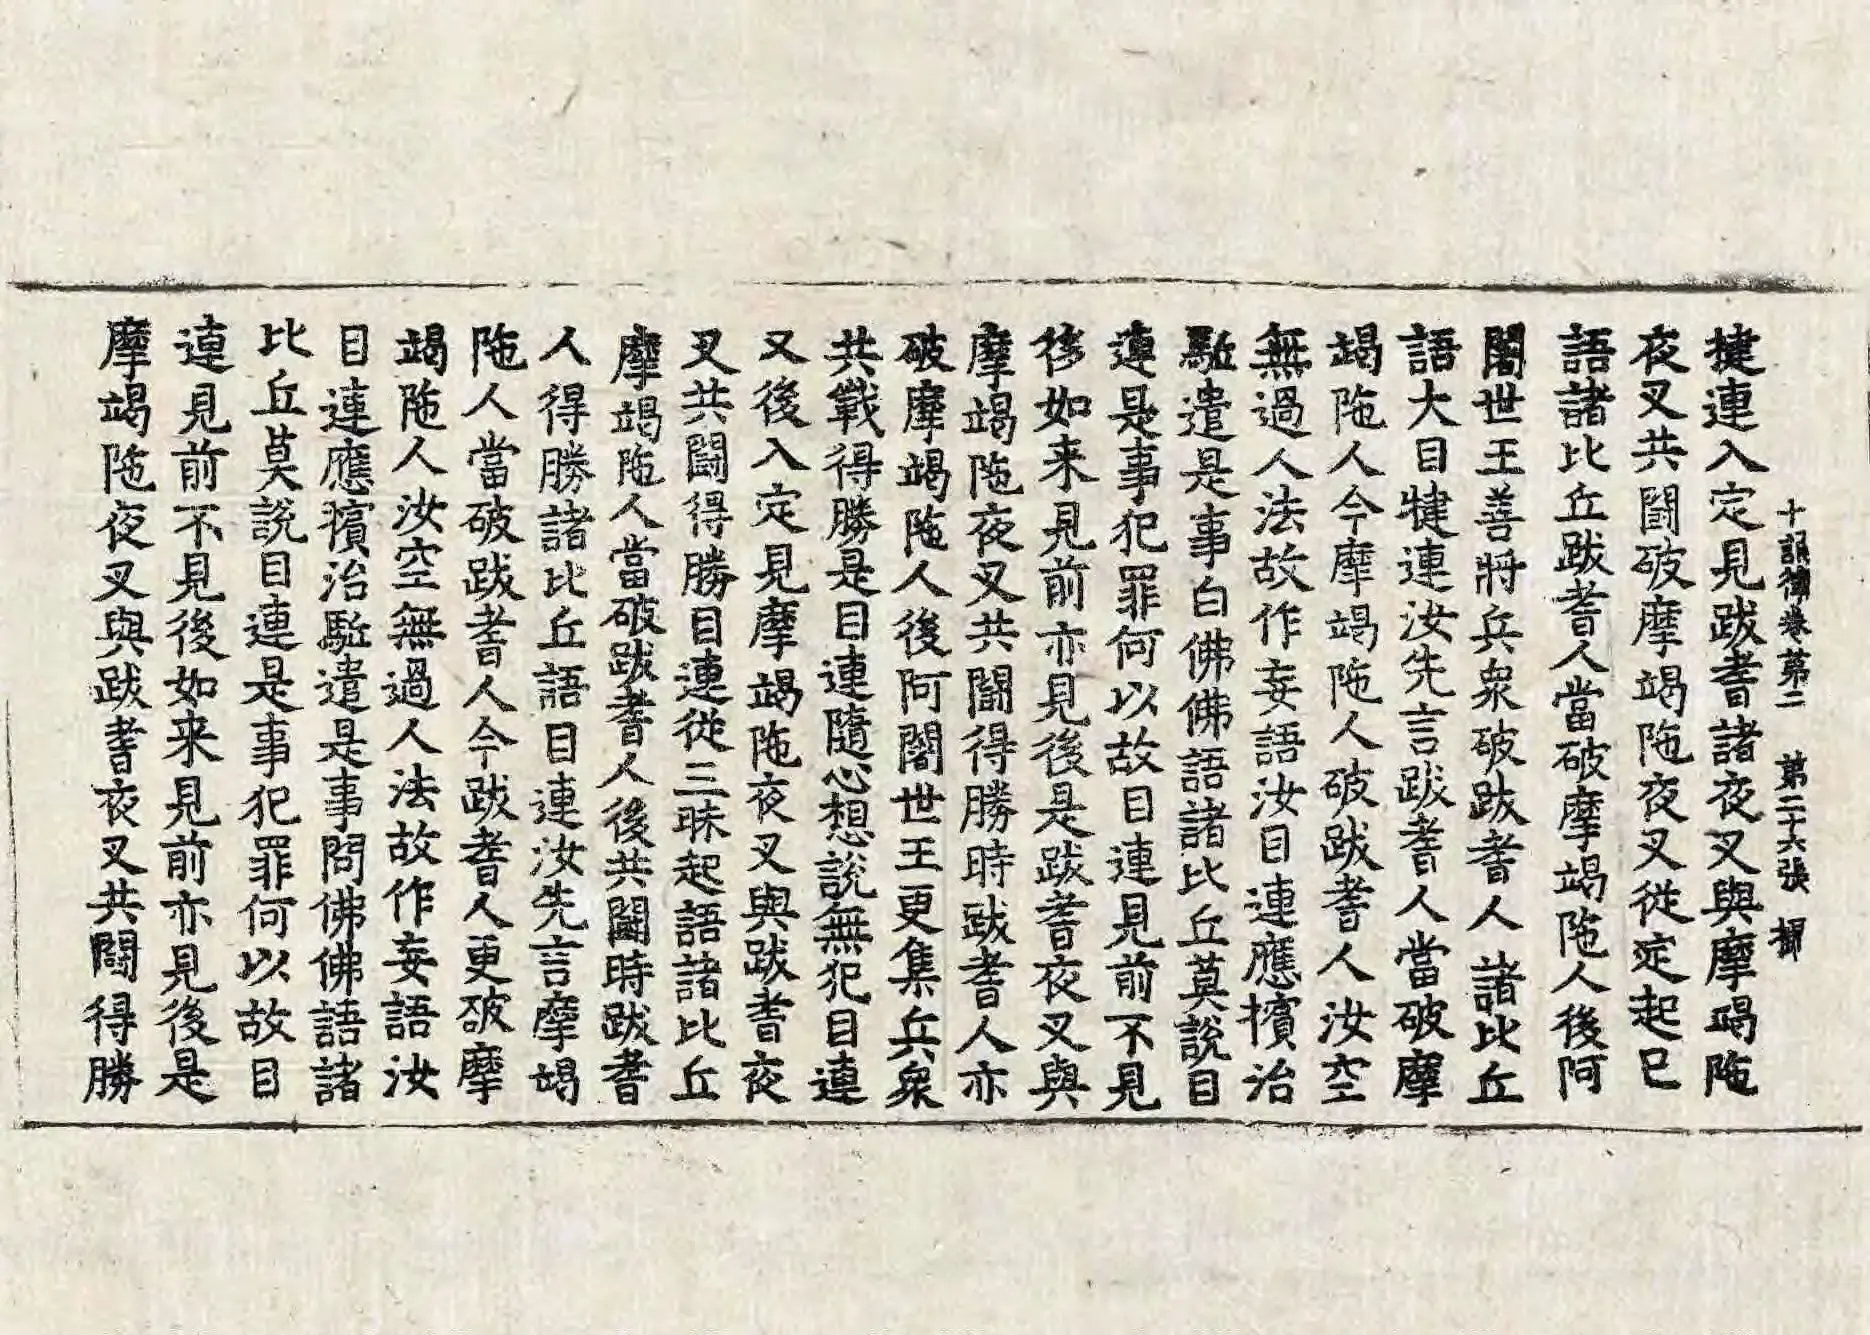 十誦律卷第二 第二十六張
揵連入定見跋耆諸夜叉與摩竭陁
夜叉共鬪破摩竭陁夜叉從定起已
語諸比丘跋耆人當破摩竭陁人後阿
闍世王善將兵衆破跋耆人諸比丘
語大目犍連汝先言跋耆人當破摩
竭陁人今摩竭陁人破跋耆人汝空
無過人法故作妄語汝目連應擯治
駈遣是事白佛佛語諸比丘莫說目
連是事犯罪何以故目連見前不見
後如来見前亦見後是跋耆夜叉與
摩竭陁夜叉共鬪得勝時跋耆人亦
破摩竭陁人後阿闍世王更集兵衆
共戰得勝是目連隨心想說無犯目連
又後入定見摩竭陁夜叉與跋耆夜
叉共鬪得勝目連從三昧起語諸比丘
摩竭陁人當破跋耆人後共鬪時跋耆
人得勝諸比丘語目連汝先言摩竭
陁人當破跋耆人今跋耆人更破摩
竭陁人汝空無過人法故作妄語汝
目連應擯治駈遣是事問佛佛語諸
比丘莫說目連是事犯罪何以故目
連見前不見後如来見前亦見後是
摩竭陁夜叉與跋耆夜叉共鬪得勝